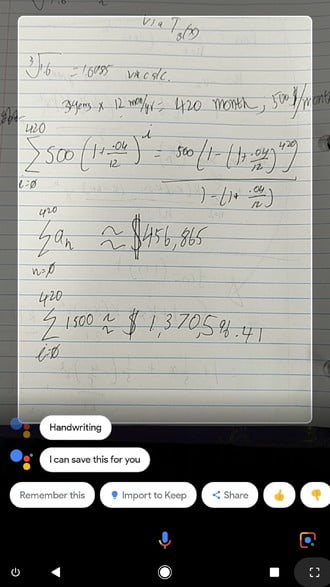 via T₃(x)
∛1.6 = 1.6985 via calc.
35years × 12 mon/yr = 420 month, 500 $/month
420
∑ 500 (1 + .04/12)^i = 500 (1 - (1 + .04/12)^420) / 1 - (1 + .04/12)
i=0
420
∑ aₙ ≈ $456,865
n=0
420
∑ 1500 ≈ $1,370,596.41
i=0
Handwriting
I can save this for you
Remember this
Import to Keep
Share